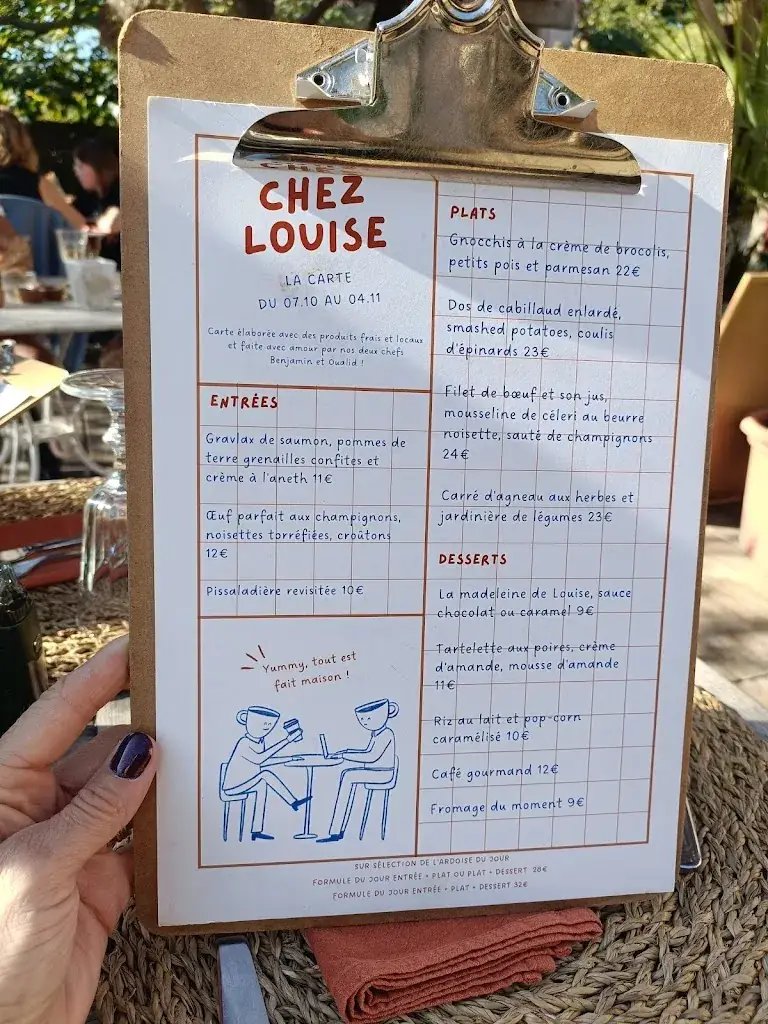 CHEZ
LOUISE
LA CARTE
DU 07.10 AU 04.11
Carte élaborée avec des produits frais et locaux
et faite avec amour par nos deux chefs
Benjamin et Oualid !
ENTRÉES
Gravlax de saumon, pommes de
terre grenailles confites et
crème à l'aneth 11€
Œuf parfait aux champignons,
noisettes torréfiées, croûtons
12€
Pissaladière revisitée 10€
Yummy, tout est
fait maison !
PLATS
Gnocchis à la crème de brocolis,
petits pois et parmesan 22€
Dos de cabillaud enlardé,
smashed potatoes, coulis
d'épinards 23€
Filet de bœuf et son jus,
mousseline de céleri au beurre
noisette, sauté de champignons
24€
Carré d'agneau aux herbes et
jardinière de légumes 23€
DESSERTS
La madeleine de Louise, sauce
chocolat ou caramel 9€
Tartelette aux poires, crème
d'amande, mousse d'amande
11€
Riz au lait et pop-corn
caramélisé 10€
Café gourmand 12€
Fromage du moment 9€
SUR SÉLECTION DE L'ARDOISE DU JOUR
FORMULE DU JOUR ENTRÉE + PLAT OU PLAT + DESSERT 26€
FORMULE DU JOUR ENTRÉE + PLAT + DESSERT 32€